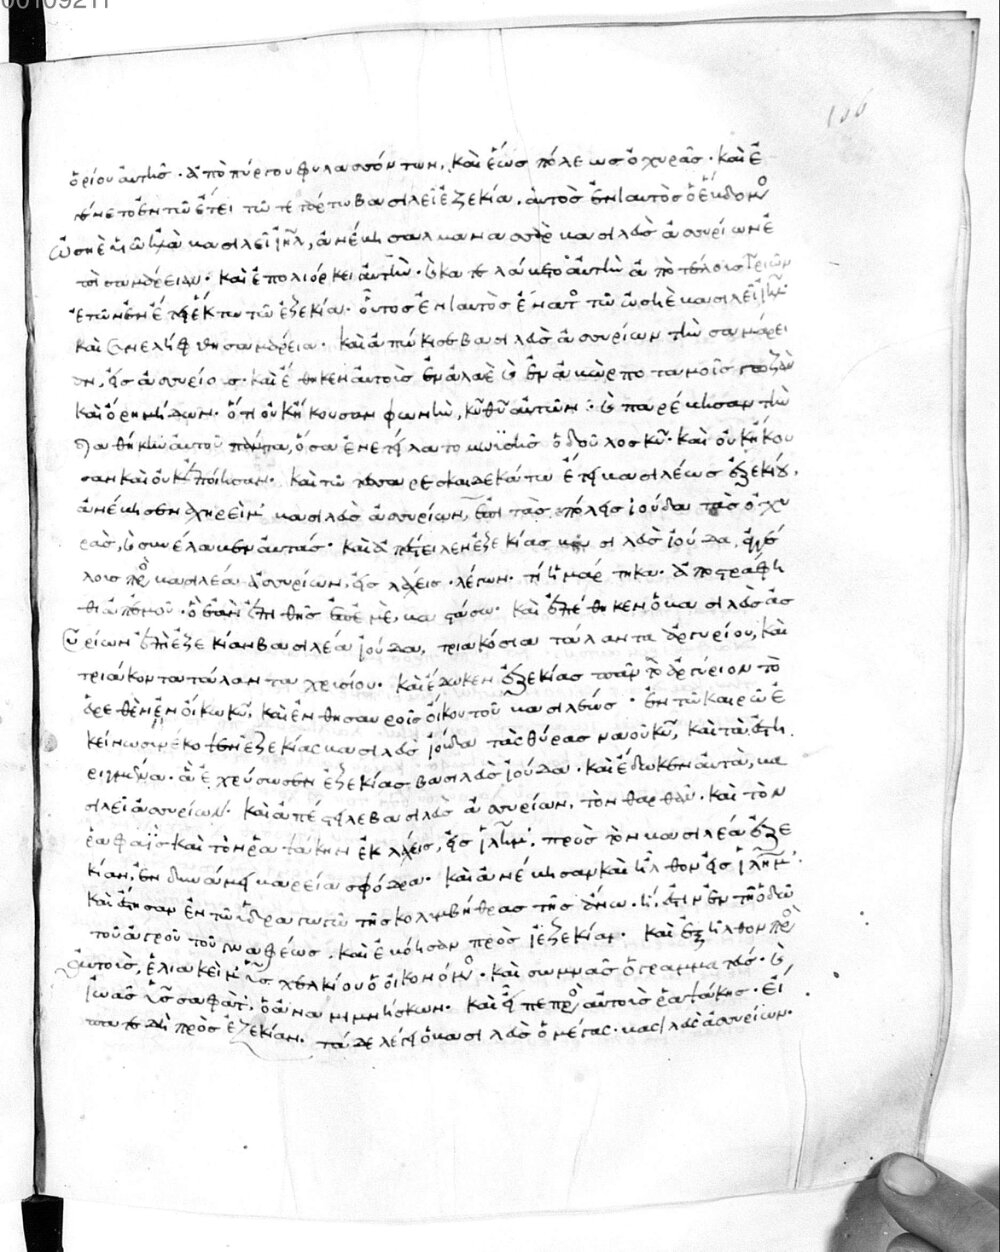 00109211
166
ὁρίου αὐτῆς· ἀπὸ πύργου φυλασσόντων, καὶ ἕως πόλεως ὀχυρᾶς· καὶ ἐ
γένετο ἐν τῶ ἔτει τῶ τετάρτω βασιλεῖ ἐζεκία, αὐτὸς ἐνιαυτὸς ὁ ἕβδομο
ὡσηὲ υἱῶ ἠλὰ βασιλεῖ ἰηλ, ἀνέβη σαλμανασὰρ βασιλεὺς ἀσσυρίων ἐ
πὶ σαμάρειαν· καὶ ἐπολιόρκει αὐτὴν· καὶ κατελάβετο αὐτὴν ἀπὸ τέλους τριῶν
ἐτῶν ἐν ἔτει ἕκτω τῶ ἐζεκία· οὗτος ἐνιαυτὸς ἔνατος τῶ ὡσηὲ βασιλεῖ ἰηλ·
καὶ συνελήφθη σαμάρεια· καὶ ἀπώκισε βασιλεὺς ἀσσυρίων τὴν σαμάρει
αν, εἰς ἀσσυρίους· καὶ ἔθηκεν αὐτοὺς ἐν ἀλαὲ καὶ ἐν ἀβὼρ ποταμοῖς γωζὰν
καὶ ὄρη μήδων· ὅτι οὐκ ἤκουσαν φωνὴν, κυ θυ αὐτῶν· καὶ παρέβησαν τὴν
διαθήκην αὐτοῦ πάντα, ὅσα ἐνετείλατο μωϋσῆς ὁ δοῦλος κυ· καὶ οὐκ ἤκου
σαν καὶ οὐκ ἐποίησαν· καὶ τῶ τεσσαρεσκαιδεκάτω ἔτει βασιλέως ἐζεκίου,
ἀνέβη σενχηρεὶμ βασιλεὺς ἀσσυρίων, ἐπὶ τὰς πόλεις ἰούδα τὰς ὀχυ
ρὰς, καὶ συνέλαβεν αὐτάς· καὶ ἀπέστειλεν ἐζεκίας βασιλεὺς ἰούδα, ἀγγέ
λους πρὸς βασιλέα ἀσσυρίων, εἰς λάχεις· λέγων· ἡμάρτηκα· ἀποστράφη
θι ἀπ' ἐμοῦ· ὃ ἐὰν ἐπιθῆς ἐπ' ἐμὲ, βαστάσω· καὶ ἐπέθηκεν ὁ βασιλεὺς ἀσ
συρίων ἐπὶ ἐζεκίαν βασιλέα ἰούδα, τριακόσια τάλαντα ἀργυρίου, καὶ
τριάκοντα τάλαντα χρυσίου· καὶ ἔδωκεν ἐζεκίας πᾶν τὸ ἀργύριον τὸ
εὑρεθὲν ἐν οἴκω κυ, καὶ ἐν θησαυροῖς οἴκου τοῦ βασιλέως· ἐν τῶ καιρῶ ἐ
κείνω συνέκοψεν ἐζεκίας βασιλεὺς ἰούδα τὰς θύρας ναοῦ κυ, καὶ τὰ ἐστη
ριγμένα· ἃ ἐχρύσωσεν ἐζεκίας βασιλεὺς ἰούδα· καὶ ἔδωκεν αὐτὰ, βα
σιλεῖ ἀσσυρίων· καὶ ἀπέστειλε βασιλεὺς ἀσσυρίων, τὸν θαρθὰν· καὶ τὸν
ῥαφαῒς καὶ τὸν ῥαψάκην ἐκ λάχεις, εἰς ἰλημ, πρὸς τὸν βασιλέα ἐζε
κίαν, ἐν δυνάμει βαρεία σφόδρα· καὶ ἀνέβησαν καὶ ἦλθον εἰς ἰλημ·
καὶ ἔστησαν ἐν τῶ ὑδραγωγῶ τῆς κολυμβήθρας τῆς ἄνω· ἥ ἐστιν ἐν τῆ ὁδῶ
τοῦ ἀγροῦ τοῦ γναφέως· καὶ ἐβόησαν πρὸς ἐζεκίαν· καὶ ἐξῆλθον πρὸς
αὐτοὺς, ἐλιακεὶμ υἱὸς χελκίου ὁ οἰκονόμος· καὶ σωμνᾶς ὁ γραμματεὺς· καὶ
ἰωὰς υἱὸς σαφὰτ, ὁ ἀναμιμνήσκων· καὶ εἶπε πρὸς αὐτοὺς ῥαψάκης· εἴ
πατε δὴ πρὸς ἐζεκίαν· τάδε λέγει ὁ βασιλεὺς ὁ μέγας· βασιλεὺς ἀσσυρίων·